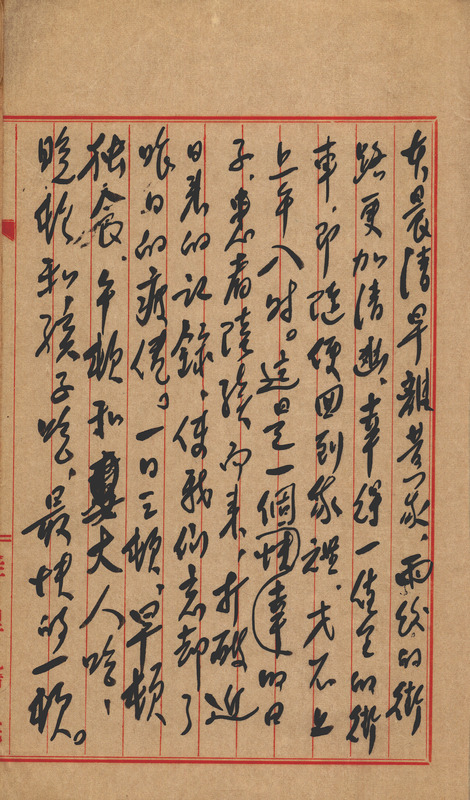 晨清早離黃家，雨後的街
路更加清幽，幸得一
車，即隨便回到家裡，才不上
上午八時。這是一個幸的日
子，患者陸續而來，打破近
日來的記錄，使我們忘却了
昨日的疲倦。一日三頓，早頓
独食，午頓和大人吃，
晚頓和孩子吃，最快的一頓。